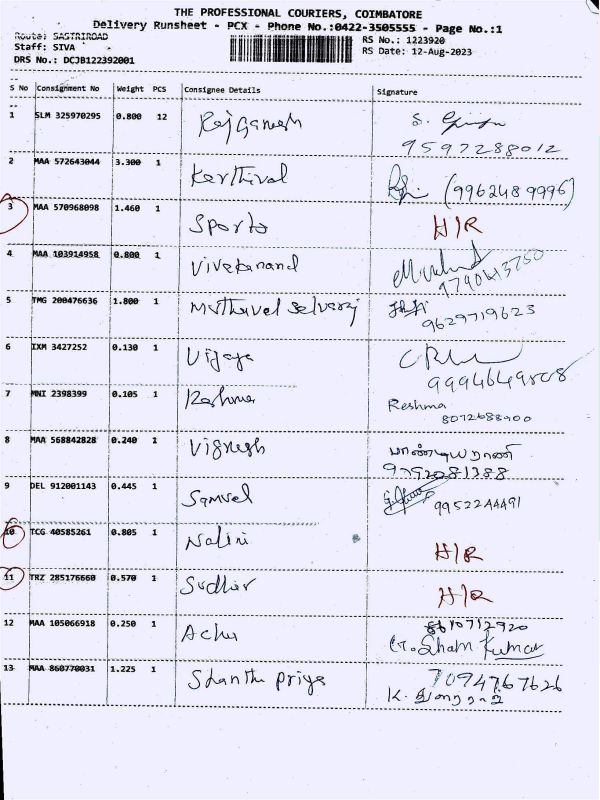 THE PROFESSIONAL COURIERS, COIMBATORE
Delivery Runsheet - PCX - Phone No.:0422-3505555 - Page No.:1
Route: SASTRIROAD
RS No.: 1223920
Staff: SIVA
RS Date: 12-Aug-2023
DRS No.: DCJB122392001
S No Consignment No Weight PCS Consignee Details Signature
1 SLM 325970295 0.800 12 Rajganesh
9597288012
2 MAA 572643044 3.300 1 Kerthival (9962489996)
3 MAA 570968098 1.460 1 Sports H/R
4 MAA 103914958 0.800 1 Vivekanand
9790413750
5 TMG 200476636 1.800 1 Muthuvel selvaraj
9629719623
6 IXM 3427252 0.130 1 Vijaya
7 MNI 2398399 0.105 1 Reshma Reshma
8072688900
8 MAA 568842828 0.240 1 Vignesh பாண்டியராணி
9792081388
9 DEL 912001143 0.445 1 Samuel 9952244491
10 TCG 40585261 0.805 1 Nalini H/R
11 TRZ 285176660 0.570 1 Sudhir H/R
12 MAA 105066918 0.250 1
G. Sham Kumar
13 MAA 860770031 1.225 1 Shanthi priya 7094767626
K.